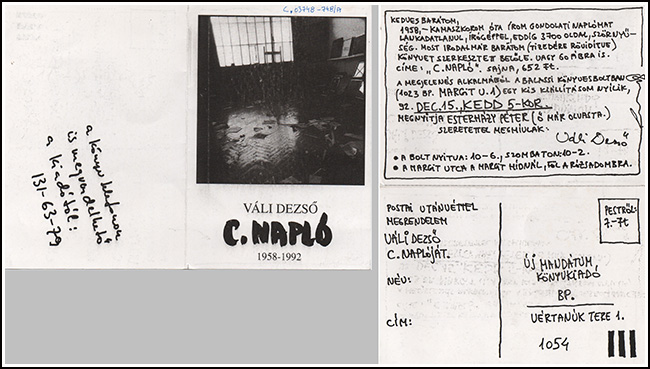 C. 03748-748/A
a könyv telefonon
is megrendelhető
a kiadótól:
131-63-79
VÁLI DEZSŐ
C. NAPLÓ
1958-1992
KEDVES BARÁTOM,
1958,- KAMASZKOROM ÓTA ÍROM GONDOLATI NAPLÓMAT
LANKADATLANUL, ÍRÓGÉPPEL, EDDIG 3700 OLDAL, SZÖRNYŰ-
SÉG. MOST IRODALMÁR BARÁTOM (TIZEDÉRE RÖVIDÍTVE)
KÖNYVET SZERKESZTETT BELŐLE. VAGY 60 ÁBRA IS.
CÍME: „C. NAPLÓ". SAJNA, 652 Ft.
A MEGJELENÉS ALKALMÁBÓL A BALASSI KÖNYVESBOLTBAN
(1023 BP. MARGIT U. 1) EGY KIS KIÁLLÍTÁSOM NYÍLIK,
92. DEC. 15., KEDD 5-KOR.
MEGNYITJA ESTERHÁZY PÉTER (Ő MÁR OLVASTA.)
SZERETETTEL MEGHÍVLAK:
Váli Dezső
• A BOLT NYITVA: 10-6., SZOMBATON: 10-2.
• A MARGIT UTCA A MARGIT HÍDNÁL, FÖL A RÓZSADOMBRA.
POSTAI UTÁNVÉTTEL
MEGRENDELEM
VÁLI DEZSŐ
C. NAPLÓJÁT.
NÉV:
CÍM:
PESTRŐL:
7.-Ft
ÚJ MANDÁTUM
KÖNYVKIADÓ
BP.
VÉRTANÚK TERE 1.
1054